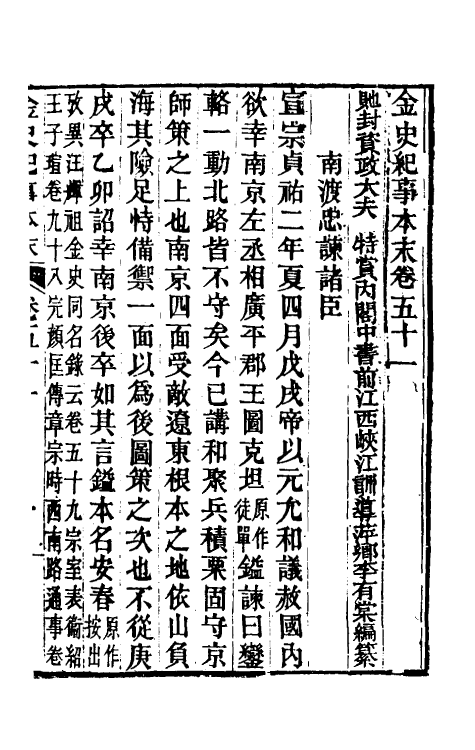 金史紀事本末卷五十一
貤封資政大夫 特賞內閣中書前江西峽江訓導萍鄉李有棠編纂
南渡忠諫諸臣
宣宗貞祐二年夏四月戊戌帝以元允和議赦國內
欲幸南京左丞相廣平郡王圖克坦原作徒單鎰諫曰鑾
輅一動北路皆不守矣今已講和聚兵積粟固守京
師策之上也南京四面受敵遼東根本之地依山負
海其險足恃備禦一面以爲後圖策之次也不從庚
戌卒乙卯詔幸南京後卒如其言鎰本名安春原作按出
攷異汪輝祖金史同名錄云卷五十九宗室表衞紹
王子瑄卷九十八完顏匡傳章宗時西南路通事卷
金史紀事本末 卷五十一 一